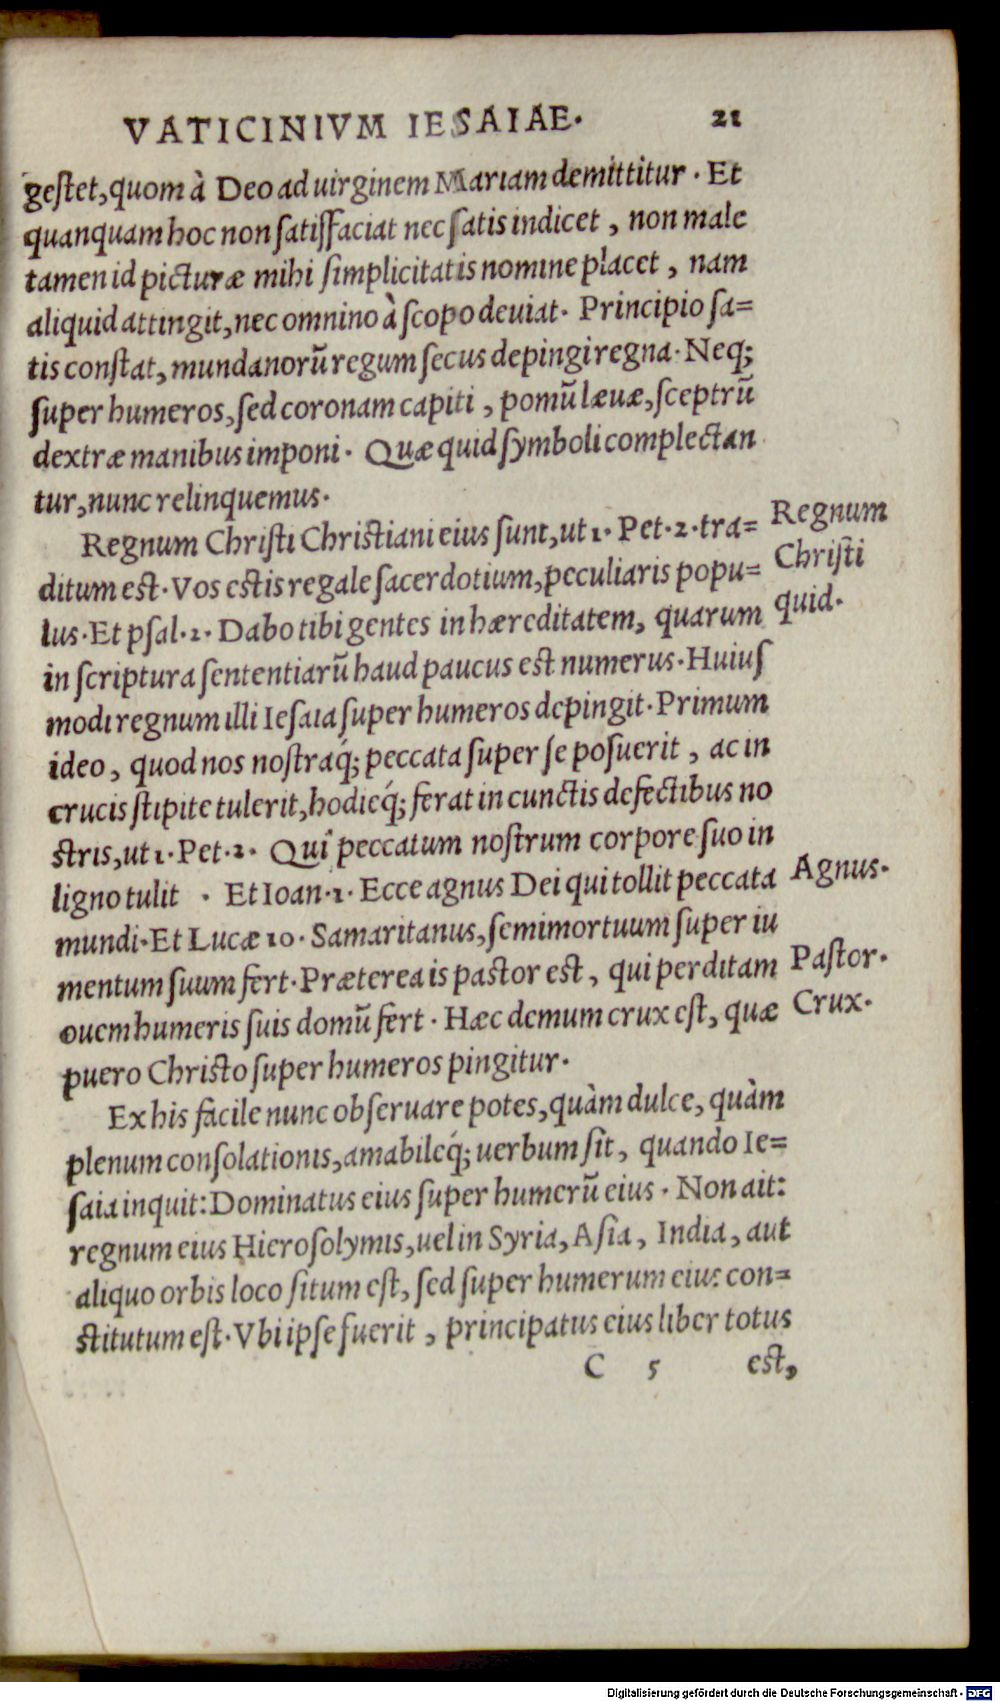 VATICINIVM IESAIAE. 21
geſtet, quom à Deo ad uirginem Mariam demittitur. Et
quanquam hoc non ſatiſfaciat nec ſatis indicet, non male
tamen id picturæ mihi ſimplicitatis nomine placet, nam
aliquid attingit, nec omnino à ſcopo deuiat. Principio ſa=
tis conſtat, mundanorũ regum ſecus depingi regna. Neq;
ſuper humeros, ſed coronam capiti, pomũ læuæ, ſceptrũ
dextræ manibus imponi. Quæ quid ſymboli complectan
tur, nunc relinquemus.
Regnum Chriſti Chriſtiani eius ſunt, ut 1. Pet. 2. tra= Regnum
ditum eſt. Vos eſtis regale ſacerdotium, peculiaris popu= Chriſti
lus. Et pſal. 2. Dabo tibi gentes in hæreditatem, quarum quid.
in ſcriptura ſententiarũ haud paucus eſt numerus. Huiuſ
modi regnum illi Ieſaia ſuper humeros depingit. Primum
ideo, quod nos noſtraq́; peccata ſuper ſe poſuerit, ac in
crucis ſtipite tulerit, hodieq́; ferat in cunctis defectibus no
ſtris, ut 1. Pet. 2. Qui peccatum noſtrum corpore ſuo in
ligno tulit . Et Ioan. 1. Ecce agnus Dei qui tollit peccata Agnus.
mundi. Et Lucæ 10. Samaritanus, ſemimortuum ſuper iu
mentum ſuum fert. Præterea is paſtor eſt, qui perditam Paſtor.
ouem humeris ſuis domũ fert. Hæc demum crux eſt, quæ Crux.
puero Chriſto ſuper humeros pingitur.
Ex his facile nunc obſeruare potes, quàm dulce, quàm
plenum conſolationis, amabileq́; uerbum ſit, quando Ie=
ſaia inquit: Dominatus eius ſuper humerũ eius. Non ait:
regnum eius Hieroſolymis, uel in Syria, Aſia, India, aut
aliquo orbis loco ſitum eſt, ſed ſuper humerum eius con=
ſtitutum eſt. Vbi ipſe fuerit, principatus eius liber totus
C 5 eſt,
Digitalisierung gefördert durch die Deutsche Forschungsgemeinschaft - DFG